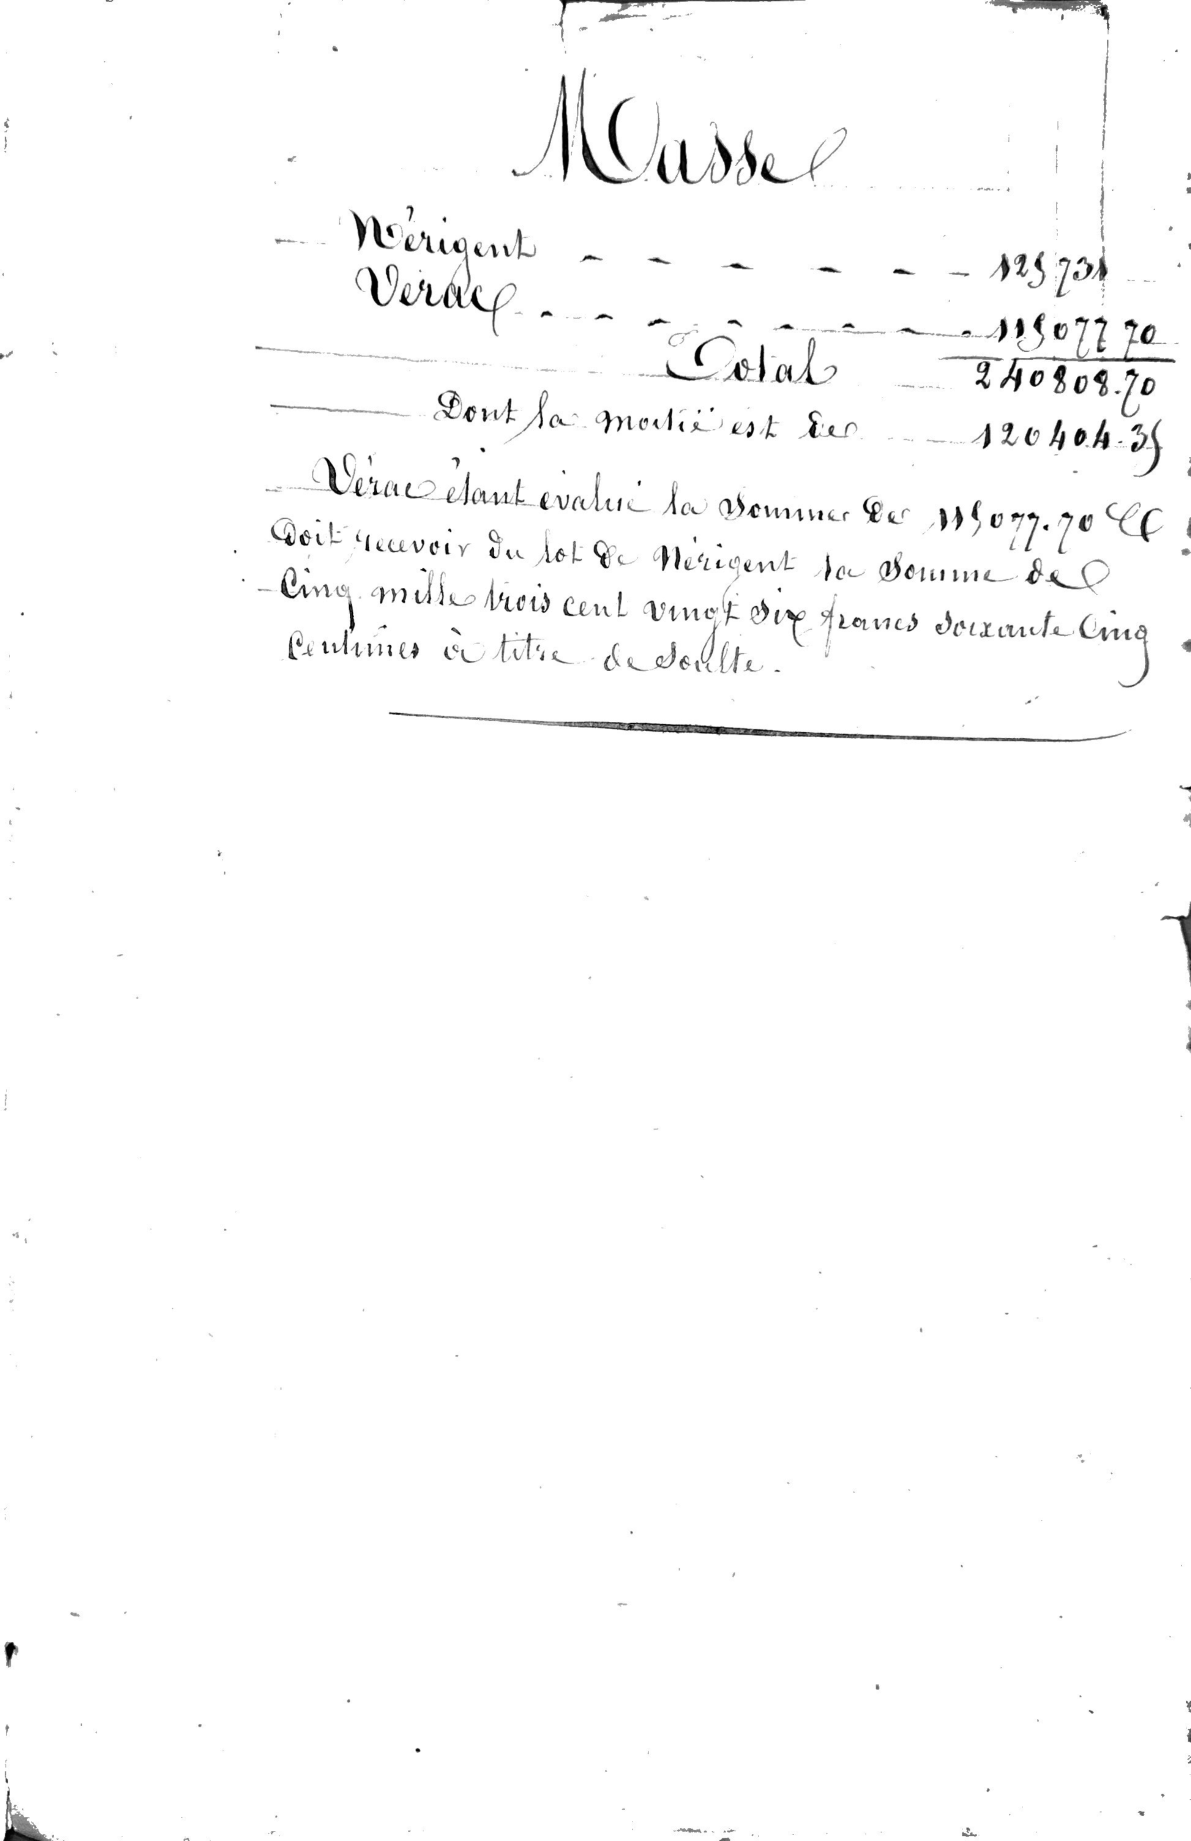 Masse
Nérigent - - - - - - 125731
Vérac - - - - - - - - 115077 70
Total 240808.70
Dont la moitié est de 120404.35
Vérac étant évalué la somme de 115077.70 Et
Doit recevoir du lot de Nérigent la somme de
Cinq mille trois cent vingt six francs soixante Cinq
Centimes à titre de Soulte.